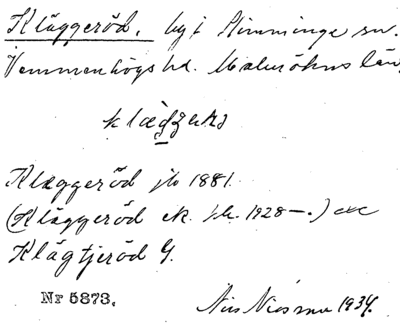 Kläggeröd, by i Slimminge sn.
Vemmenhögs hd. Malmöhus län
Klaggeröd jb 1881.
(Kläggeröd ek. bl. 1928–.)
Klägtjeröd G.
Nr 5873.
Nils 1934.